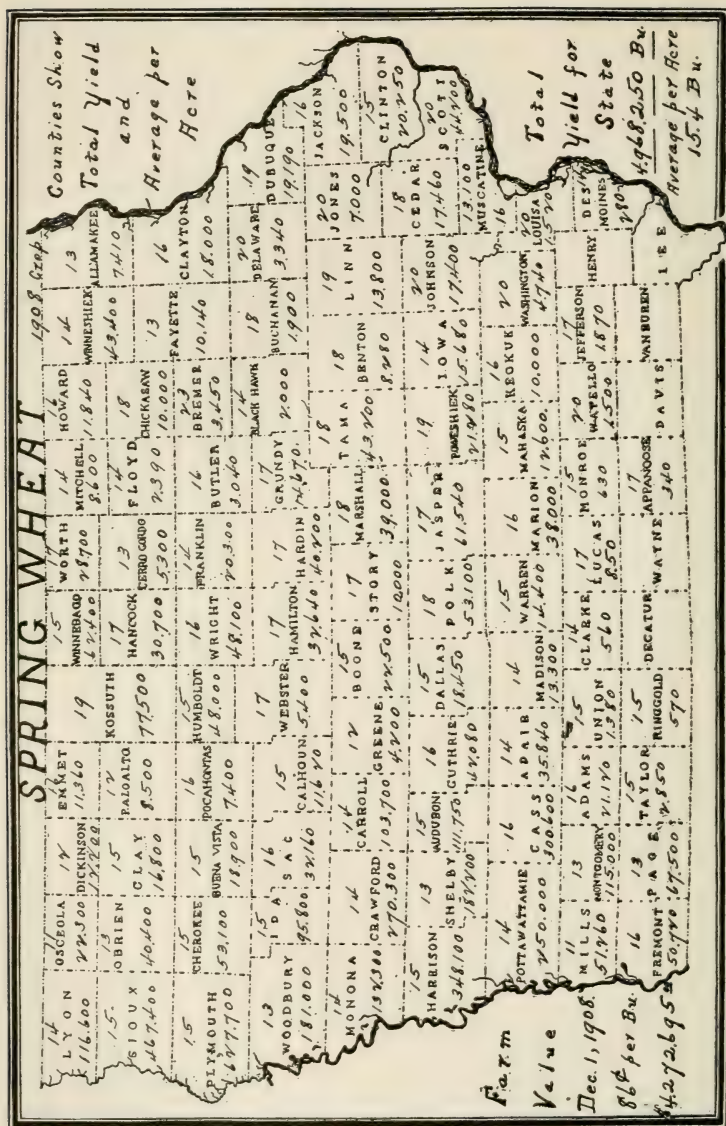 SPRING WHEAT
1908 Crop
Counties Show
Total Yield
and
Average per
Acre
14
LYON
116.600
11
OSCEOLA
22.300
12
DICKINSON
12.200
EMMET
11.360
19
KOSSUTH
77.500
15
WINNEBAGO
62.400
17
WORTH
28.700
14
MITCHELL
8.600
16
HOWARD
11.840
14
WINNESHIEK
43.400
13
ALLAMAKEE
7.410
15
SIOUX
467.400
13
OBRIEN
40.400
15
CLAY
16.800
12
PALO ALTO
8.500
17
HANCOCK
30.700
13
CERRO GORDO
5.300
14
FLOYD
2.390
18
CHICKASAW
10.000
13
FAYETTE
10.140
16
CLAYTON
18.000
15
PLYMOUTH
627.700
15
CHEROKEE
53.100
15
BUENA VISTA
18.900
16
POCAHONTAS
7.400
15
HUMBOLDT
48.000
16
WRIGHT
48.100
14
FRANKLIN
20.300
16
BUTLER
3.040
23
BREMER
3.450
13
WOODBURY
181.000
15
IDA
95.800
16
SAC
32.160
15
CALHOUN
11.620
17
WEBSTER
5.400
17
HAMILTON
32.640
17
HARDIN
40.200
17
GRUNDY
14.670
14
BLACK HAWK
2.000
18
BUCHANAN
1.900
20
DELAWARE
3.340
19
DUBUQUE
19.190
14
MONONA
132.300
14
CRAWFORD
270.300
14
CARROLL
103.700
12
GREENE
4.200
15
BOONE
22.500
17
STORY
12000
18
MARSHALL
39.000
18
TAMA
43.200
18
BENTON
8.280
19
LINN
13.800
20
JONES
7.000
16
JACKSON
19.500
15
CLINTON
20.250
15
HARRISON
348.100
13
SHELBY
182.200
15
AUDUBON
111.750
16
GUTHRIE
42.080
15
DALLAS
18.450
18
POLK
53.100
17
JASPER
61.540
19
POWESHIEK
21.280
14
IOWA
15.680
20
JOHNSON
17.400
18
CEDAR
17.460
20
SCOTT
44.200
13.100
MUSCATINE
14
POTTAWATTAMIE
250.000
16
CASS
300.600
14
ADAIR
35.840
14
MADISON
13.300
15
WARREN
14.400
16
MARION
38.000
15
MAHASKA
12.600
16
KEOKUK
10.000
20
WASHINGTON
4.740
16
20
LOUISA
1.520
11
MILLS
51.260
13
MONTGOMERY
115.000
16
ADAMS
21.120
15
UNION
1.380
14
CLARKE
560
17
LUCAS
8.50
15
MONROE
630
20
WAPELLO
6500
17
JEFFERSON
1.870
HENRY
DES
MOINES
280
16
FREMONT
50.720
13
PAGE
67.500
15
TAYLOR
2.850
15
RINGGOLD
570
DECATUR
WAYNE
17
APPANOOSE
340
DAVIS
VAN BUREN
LEE
Farm
Value
Dec. 1, 1908.
86¢ per Bu.
$4.272.695
Total
Yield for
State
4.968.250 Bu.
Average per Acre
15.4 Bu.